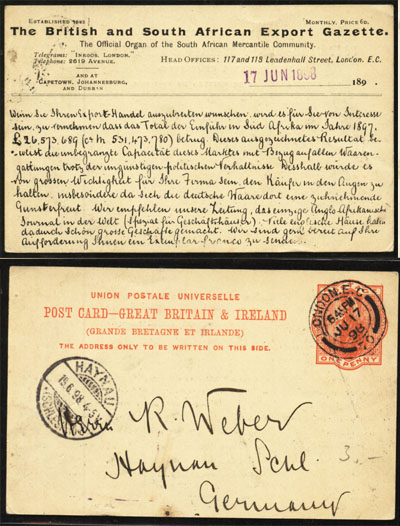 ESTABLISHED MONTHLY, PRICE 6D.
The British and South African Export Gazette.
The Official Organ of the South African Mercantile Community.
Telegrams: "INBOOR, LONDON."
Telephone: 5619 AVENUE.
HEAD OFFICES: 117 and 118 Leadenhall Street, London, E.C.
AND AT
CAPETOWN, JOHANNESBURG,
AND DURBAN
17 JUN 1898 189 .
Wenn Sie Ihren Export Handel auszubreiten wünschen, wird es für Sie von Interesse
sein, zu vernehmen dass das Total der Einfuhr in Süd Afrika im Jahre 1897,
£ 26,573,689 (ca M. 531,473,780) betrug. Dieses ausgezeichnetes Resultat be-
weist die unbegränzte Capacität dieses Marktes mit Bezug auf allen Waaren-
gattungen trotz der ungünstigen politischen Verhältnisse. Desshalb würde es
von grossen Wichtigkeit für Ihre Firma sein, den Käufer in den Augen zu
halten, insbesondere da sich die deutsche Waare dort eine zunehmende
Gunst erfreut. Wir empfehlen unsere Zeitung, das einzige Anglo Afrikanische
Journal in der Welt (spezial für Geschäftshäuser). Viele englische Häuser haben
dadurch schön grosse Geschäfte gemacht. Wir sind gern bereit auf Ihre
Aufforderung Ihnen ein Exemplar franco zu senden.
UNION POSTALE UNIVERSELLE
POST CARD—GREAT BRITAIN & IRELAND
(GRANDE BRETAGNE ET IRLANDE)
THE ADDRESS ONLY TO BE WRITTEN ON THIS SIDE.
LONDON.E.C.
JU 17
98
ONE PENNY
HAYNAU
18.6.98
(SCHLES)
Herrn R. Weber
Haynau Schl.
3,-
Germany